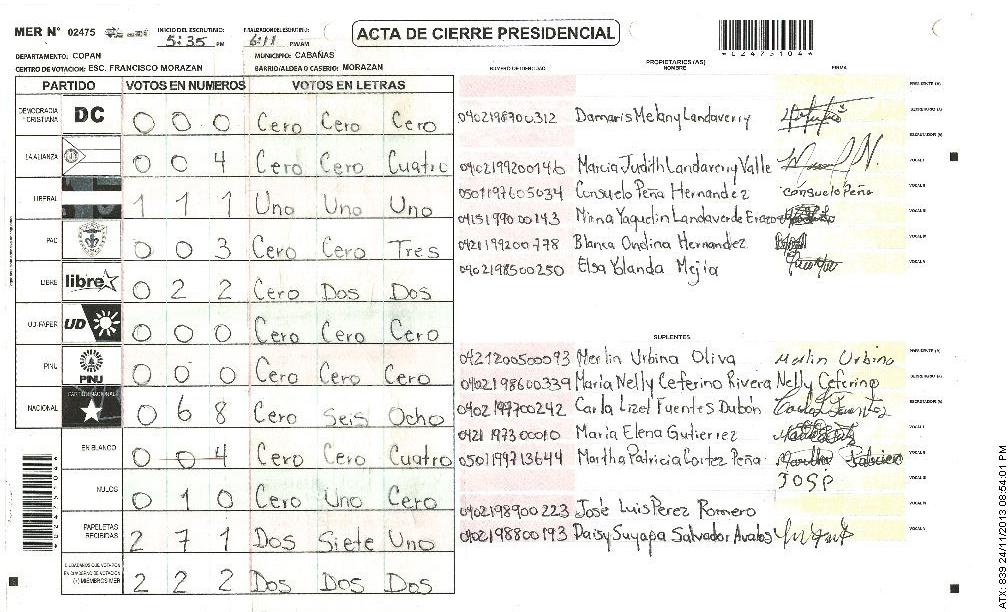 MER N° 02475 INICIO DEL ESCRUTINIO: 5:35 PM FINALIZACION DEL ESCRUTINIO: 6:11 PM/AM
ACTA DE CIERRE PRESIDENCIAL
DEPARTAMENTO: COPAN MUNICIPIO: CABAÑAS
CENTRO DE VOTACION: ESC. FRANCISCO MORAZAN BARRIO/ALDEA O CASERIO: MORAZAN
PARTIDO VOTOS EN NUMEROS VOTOS EN LETRAS
DEMOCRACIA CRISTIANA DC 0 0 0 Cero Cero Cero
LA ALIANZA 0 0 4 Cero Cero Cuatro
LIBERAL 1 1 1 Uno Uno Uno
PAC 0 0 3 Cero Cero Tres
LIBRE libre 0 2 2 Cero Dos Dos
UD-FAPER UD 0 0 0 Cero Cero Cero
PINU PINU 0 0 0 Cero Cero Cero
NACIONAL PARTIDO NACIONAL 0 6 8 Cero Seis Ocho
EN BLANCO 0 0 4 Cero Cero Cuatro
NULOS 0 1 0 Cero Uno Cero
PAPELETAS RECIBIDAS 2 7 1 Dos Siete Uno
CIUDADANOS QUE VOTARON EN CUADERNO DE VOTACION (+) MIEMBROS MER 2 2 2 Dos Dos Dos
NUMERO DE IDENTIDAD PROPIETARIOS (AS) NOMBRE FIRMA
PRESIDENTE (A)
0402198700312 Damaris Melany Landaverry SECRETARIO (A)
ESCRUTADOR (A)
0402199200146 Marcia Judith Landaverry Valle VOCAL I
0501197605034 Consuelo Peña Hernandez Consuelo Peña VOCAL II
0415199000143 Mirna Yaquelin Landaverde Erazo VOCAL III
0421199200778 Blanca Ondina Hernandez VOCAL IV
0402198500250 Elsa Yolanda Mejia VOCAL V
SUPLENTES
0421200500093 Merlin Urbina Oliva Merlin Urbina PRESIDENTE (A)
0402198600339 Maria Nelly Ceferino Rivera Nelly Ceferino SECRETARIO (A)
0402197700242 Carla Lizel Fuentes Dubón ESCRUTADOR (A)
0421197300010 Maria Elena Gutierrez VOCAL I
0501199713644 Martha Patricia Cortez Peña Martha Patricia VOCAL II
JOSP
0402198900223 Jose Luis Perez Romero VOCAL IV
0402198800193 Daisy Suyapa Salvador Avalos VOCAL V
ATX: 839 24/11/2013 08:54:01 PM